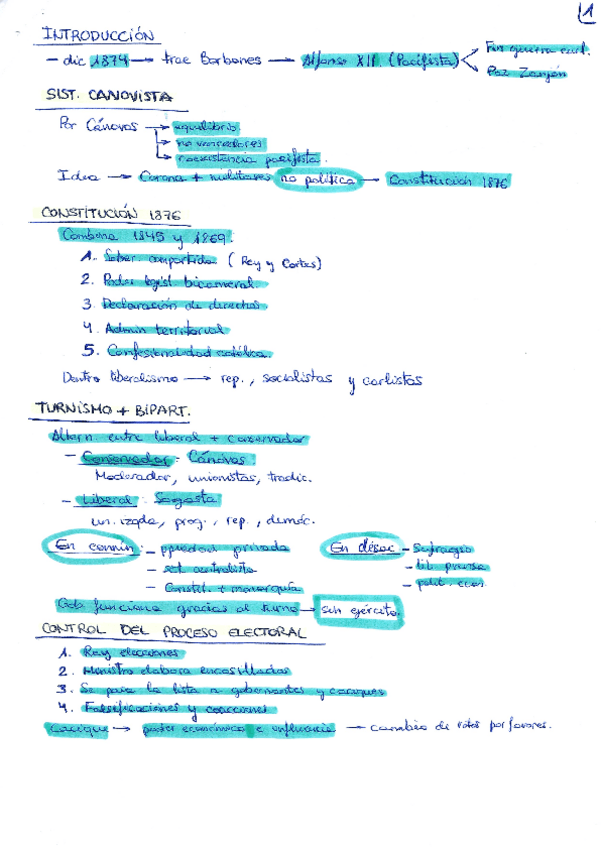 1
INTRODUCCIÓN
- dic 1874 → trae Borbones → Alfonso XII. (Pacifista)
Fin guerra carl.
Paz Zanjón
SIST. CANOVISTA
Por Cánovas → equilibrio
→ no vencedores
→ coexistencia pacífista.
Idea → Corona + militares no política → Constitución 1876
CONSTITUCIÓN 1876
Combina 1845 y 1869.
1. Sober. compartida (Rey y Cortes)
2. Poder legisl. bicameral.
3. Declaración de derechos
4. Admin territorial
5. Confesionalidad católica.
Dentro liberalismo → rep., socialistas y carlistas
TURNISMO + BIPART.
Altern. entre liberal + conservador
- Conservador: Cánovas.
Moderador, unionistas, tradic.
- Liberal: Sagasta
un. izqda, prog., rep., demóc.
En común: - propiedad privada
- est. centralista
- Constit. + monarquía
En desac - Sufragio
- lib. prensa
- polit. econ.
Gob funciona gracias al turno → sin ejército.
CONTROL DEL PROCESO ELECTORAL
1. Rey elecciones
2. Ministro elabora encasillados
3. Se pasa la lista a gobernantes y caciques
4. Falsificaciones y coacciones
Cacique → poder económico e influencia → cambio de votos por favores.